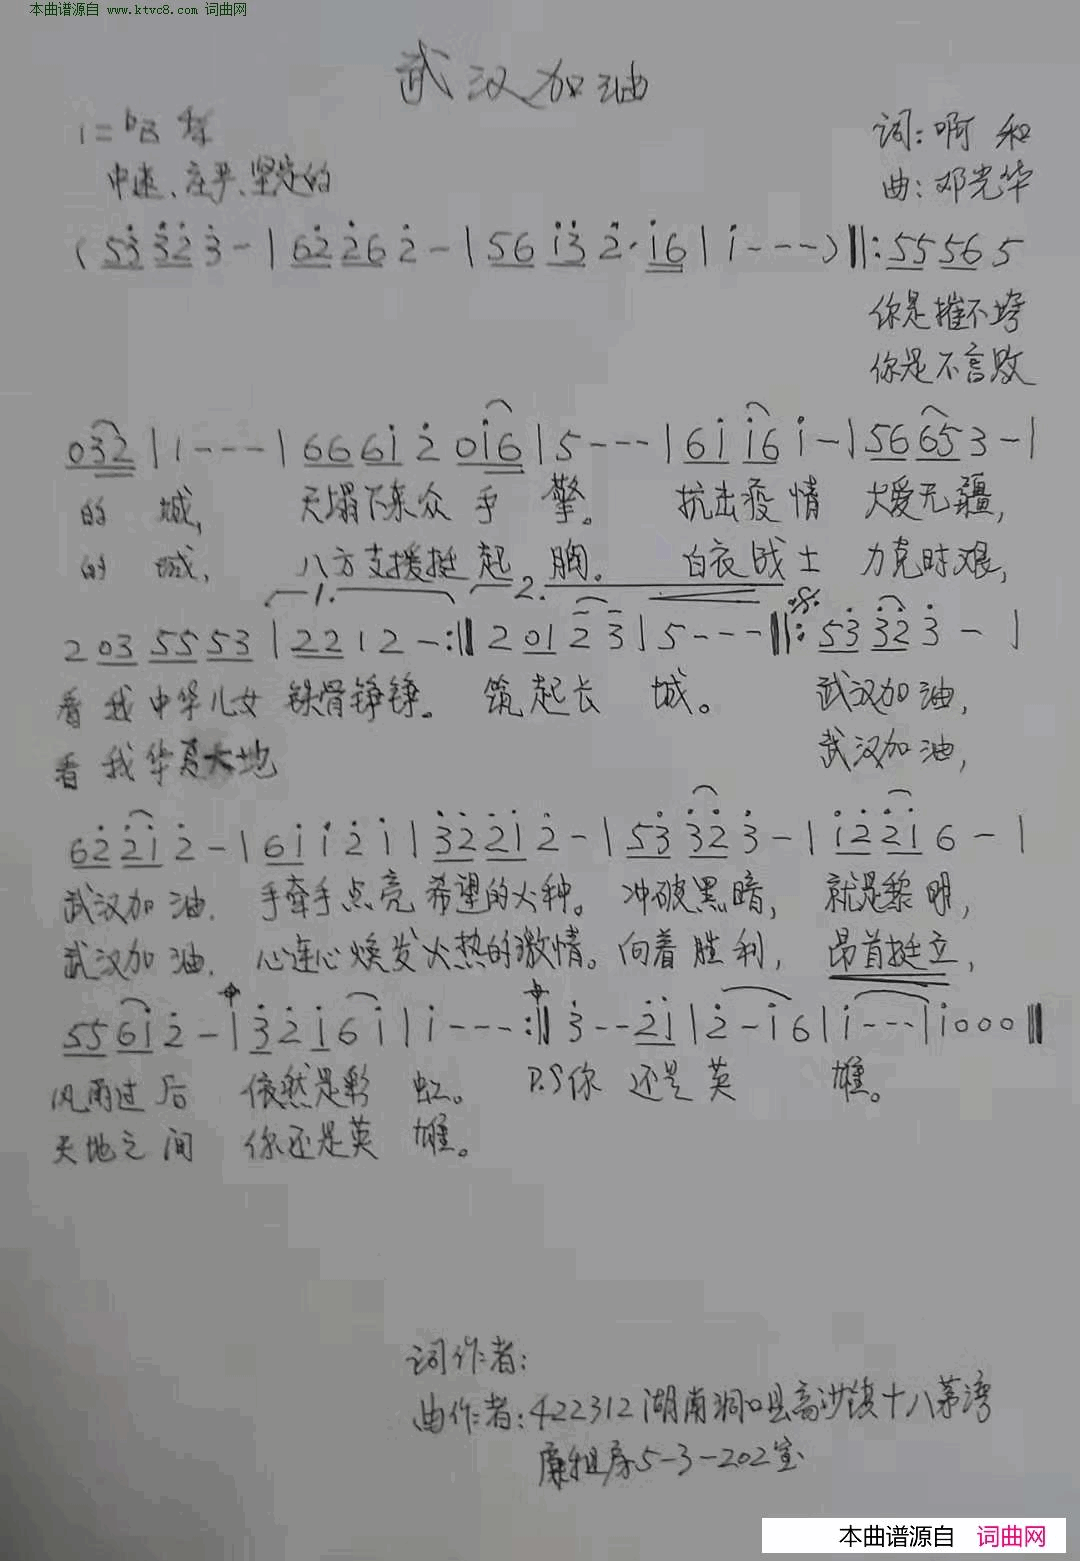 本曲谱源自 www.ktvc8.com 词曲网
武汉加油
1=♭B 4/4
词：啊 和
中速、庄严、坚定的
曲：邓光华
(53 323 - | 62 262 - | 56 i3 2· i6 | i - - - ) ‖: 55 56 5
你是摧不垮
你是不言败
032 | 1 - - - | 66 6i 2 0i6 | 5 - - - | 6i i6 i - | 56 65 3 - |
的 城, 天塌下来众 手 擎。 抗击疫 情 大爱无疆,
的 城, 八方支援挺 起 胸。 白衣战士 力克时艰,
1. 2.
2 03 55 53 | 22 1 2 - :‖ 2 01 2 3 | 5 - - - ‖: 53 32 3 - |
看 我 中华儿女 铁骨铮铮。 筑 起长 城。 武汉加油,
看 我 华夏大地 武汉加油,
62 2i 2 - | 6i i 2 i | 32 2i 2 - | 53 32 3 - | i2 2i 6 - |
武汉加 油. 手牵手点亮 希望的火种。 冲破黑暗, 就是黎明,
武汉加 油. 心连心焕发火热的激情。向着胜利, 昂首挺立,
55 6i 2 - | 3 2 i 6 i | i - - - :‖ 3 - - 2i | 2 - i 6 | i - - - | i000 ‖
风雨过后 依然是彩 虹。 D.S你 还是英 雄。
天地之间 你还是英 雄。
词作者:
曲作者:422312湖南洞口县高沙镇十八茅湾
廉租房5-3-202室
本曲谱源自 词曲网